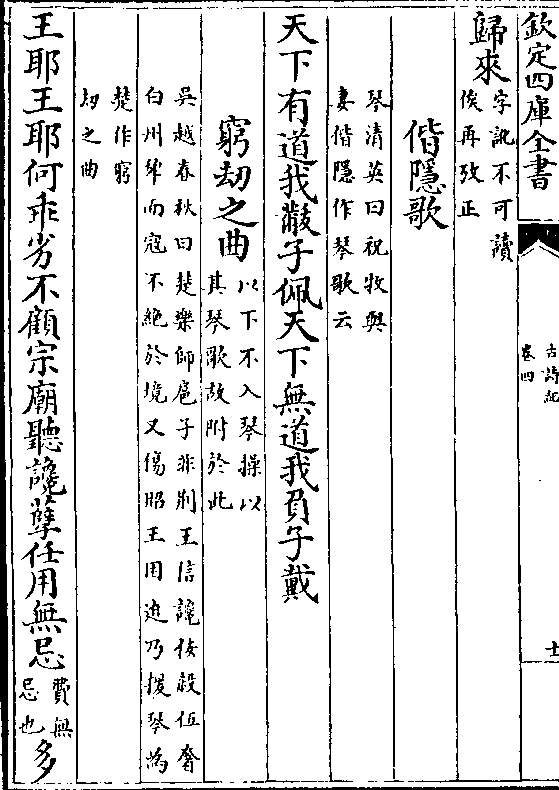 欽定四庫全書
古詩紀
卷四
十一
歸來字訛不可讀
俟再攷正
偕隱歌
琴清英曰祝牧與
妻偕隱作琴歌云
天下有道我黻子佩天下無道我負子戴
窮刼之曲以下不入琴操以
其琴歌故附於此
吳越春秋曰楚樂師扈子非荆王信讒佞殺伍奢
白州犂而寇不絶於境又傷昭王困迫乃援琴為
楚作窮
刼之曲
王耶王耶何乖劣不顧宗廟聽讒孽任用無忌費無
忌也多